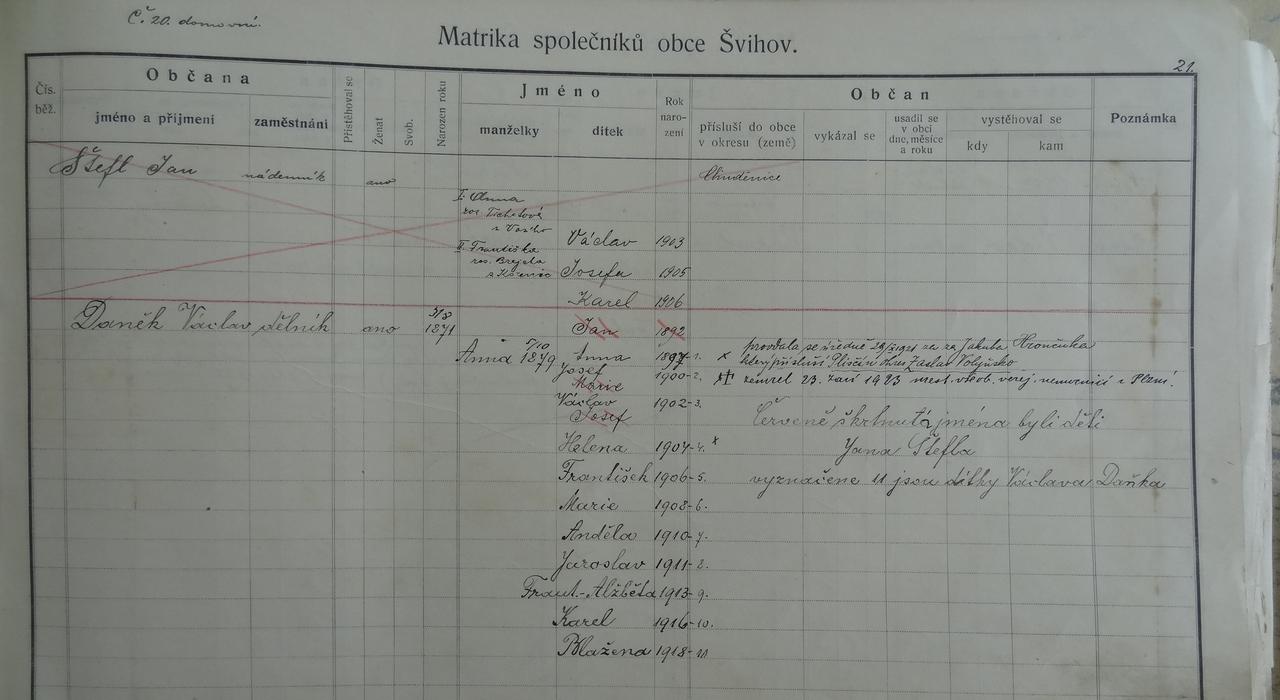 Č 20. domovní.
Matrika společníků obce Švihov.
21.
Čís. běž.
Občana
jméno a přijmení
zaměstnání
Přistěhoval se
Ženat
Svob.
Narozen roku
Jméno
manželky
dítek
Rok naro- zení
Občan
přísluší do obce v okresu (země)
vykázal se
usadil se v obci dne, měsíce a roku
vystěhoval se
kdy
kam
Poznámka
Štefl Jan nádenník ano Chudenice
I. Anna
roz. Tichotová
z
Václav 1903
II. Františka
roz. Brejcha
z
Josefa 1905
Karel 1906
Daněk Václav dělník ano 3/8 1871 Jan 1892
Anna 5/10 1879 Anna 1897-1. x provdala se úředně za Jakuba Hrončuka
který přísluší okres Zaslav Volyňsko
Josef 1900-2. zemřel 23. září 1923 měst. všeob. veřej. nemocnici v Plzni.
Marie
Václav 1902-3.
Josef
Červeně škrtnutá jména byli děti
Helena 1904-4. x Jana Štefla
František 1906-5. vyznačené 11 jsou dítky Václava Daňka
Marie 1908-6.
Anděla 1910-7.
Jaroslav 1911-8.
Frant.-Alžběta 1913-9.
Karel 1916-10.
Blažena 1918-11